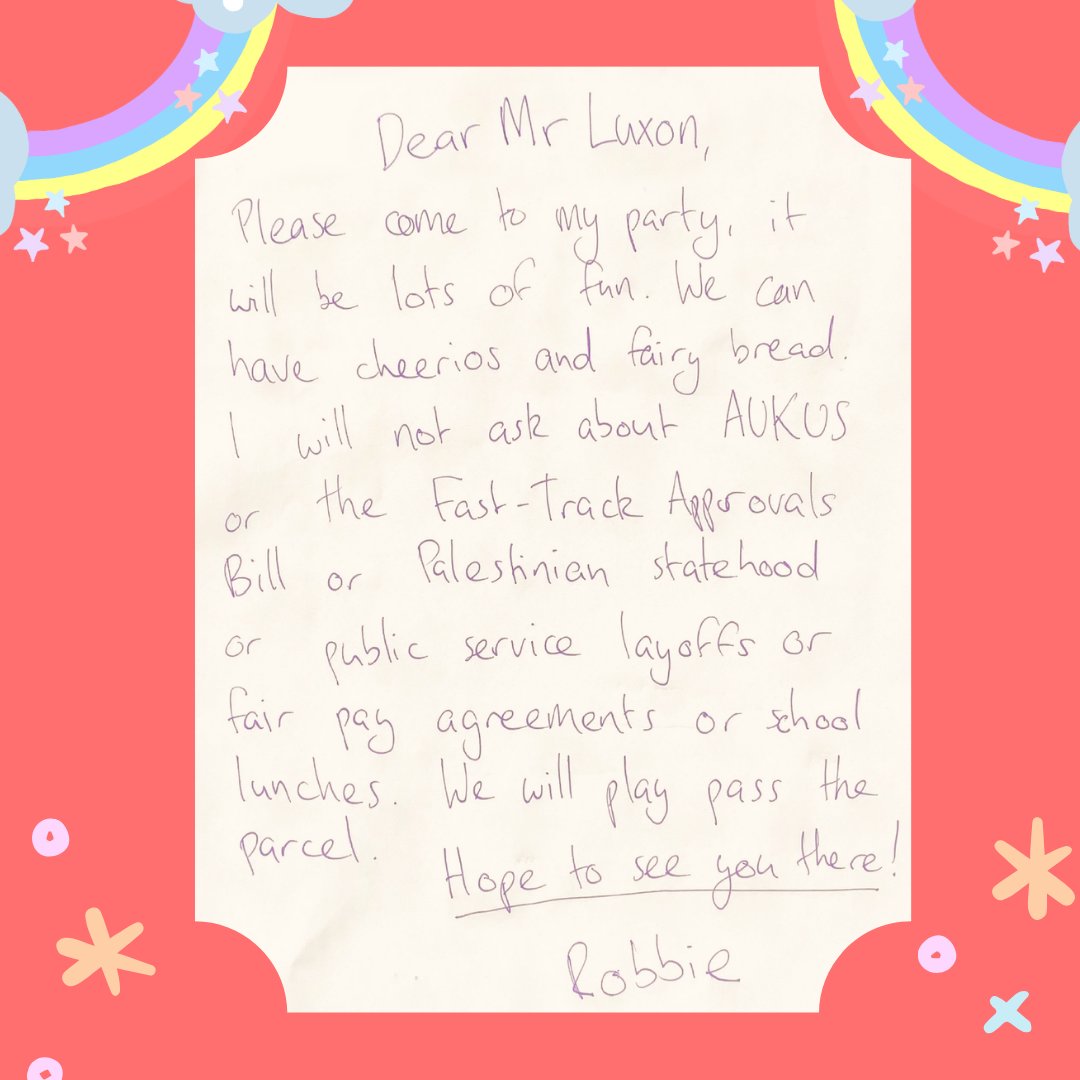 Dear Mr Luxon,
Please come to my party, it
will be lots of fun. We can
have cheerios and fairy bread.
I will not ask about AUKUS
or the Fast-Track Approvals
Bill or Palestinian statehood
or public service layoffs or
fair pay agreements or school
lunches. We will play pass the
parcel.
Hope to see you there!
Robbie